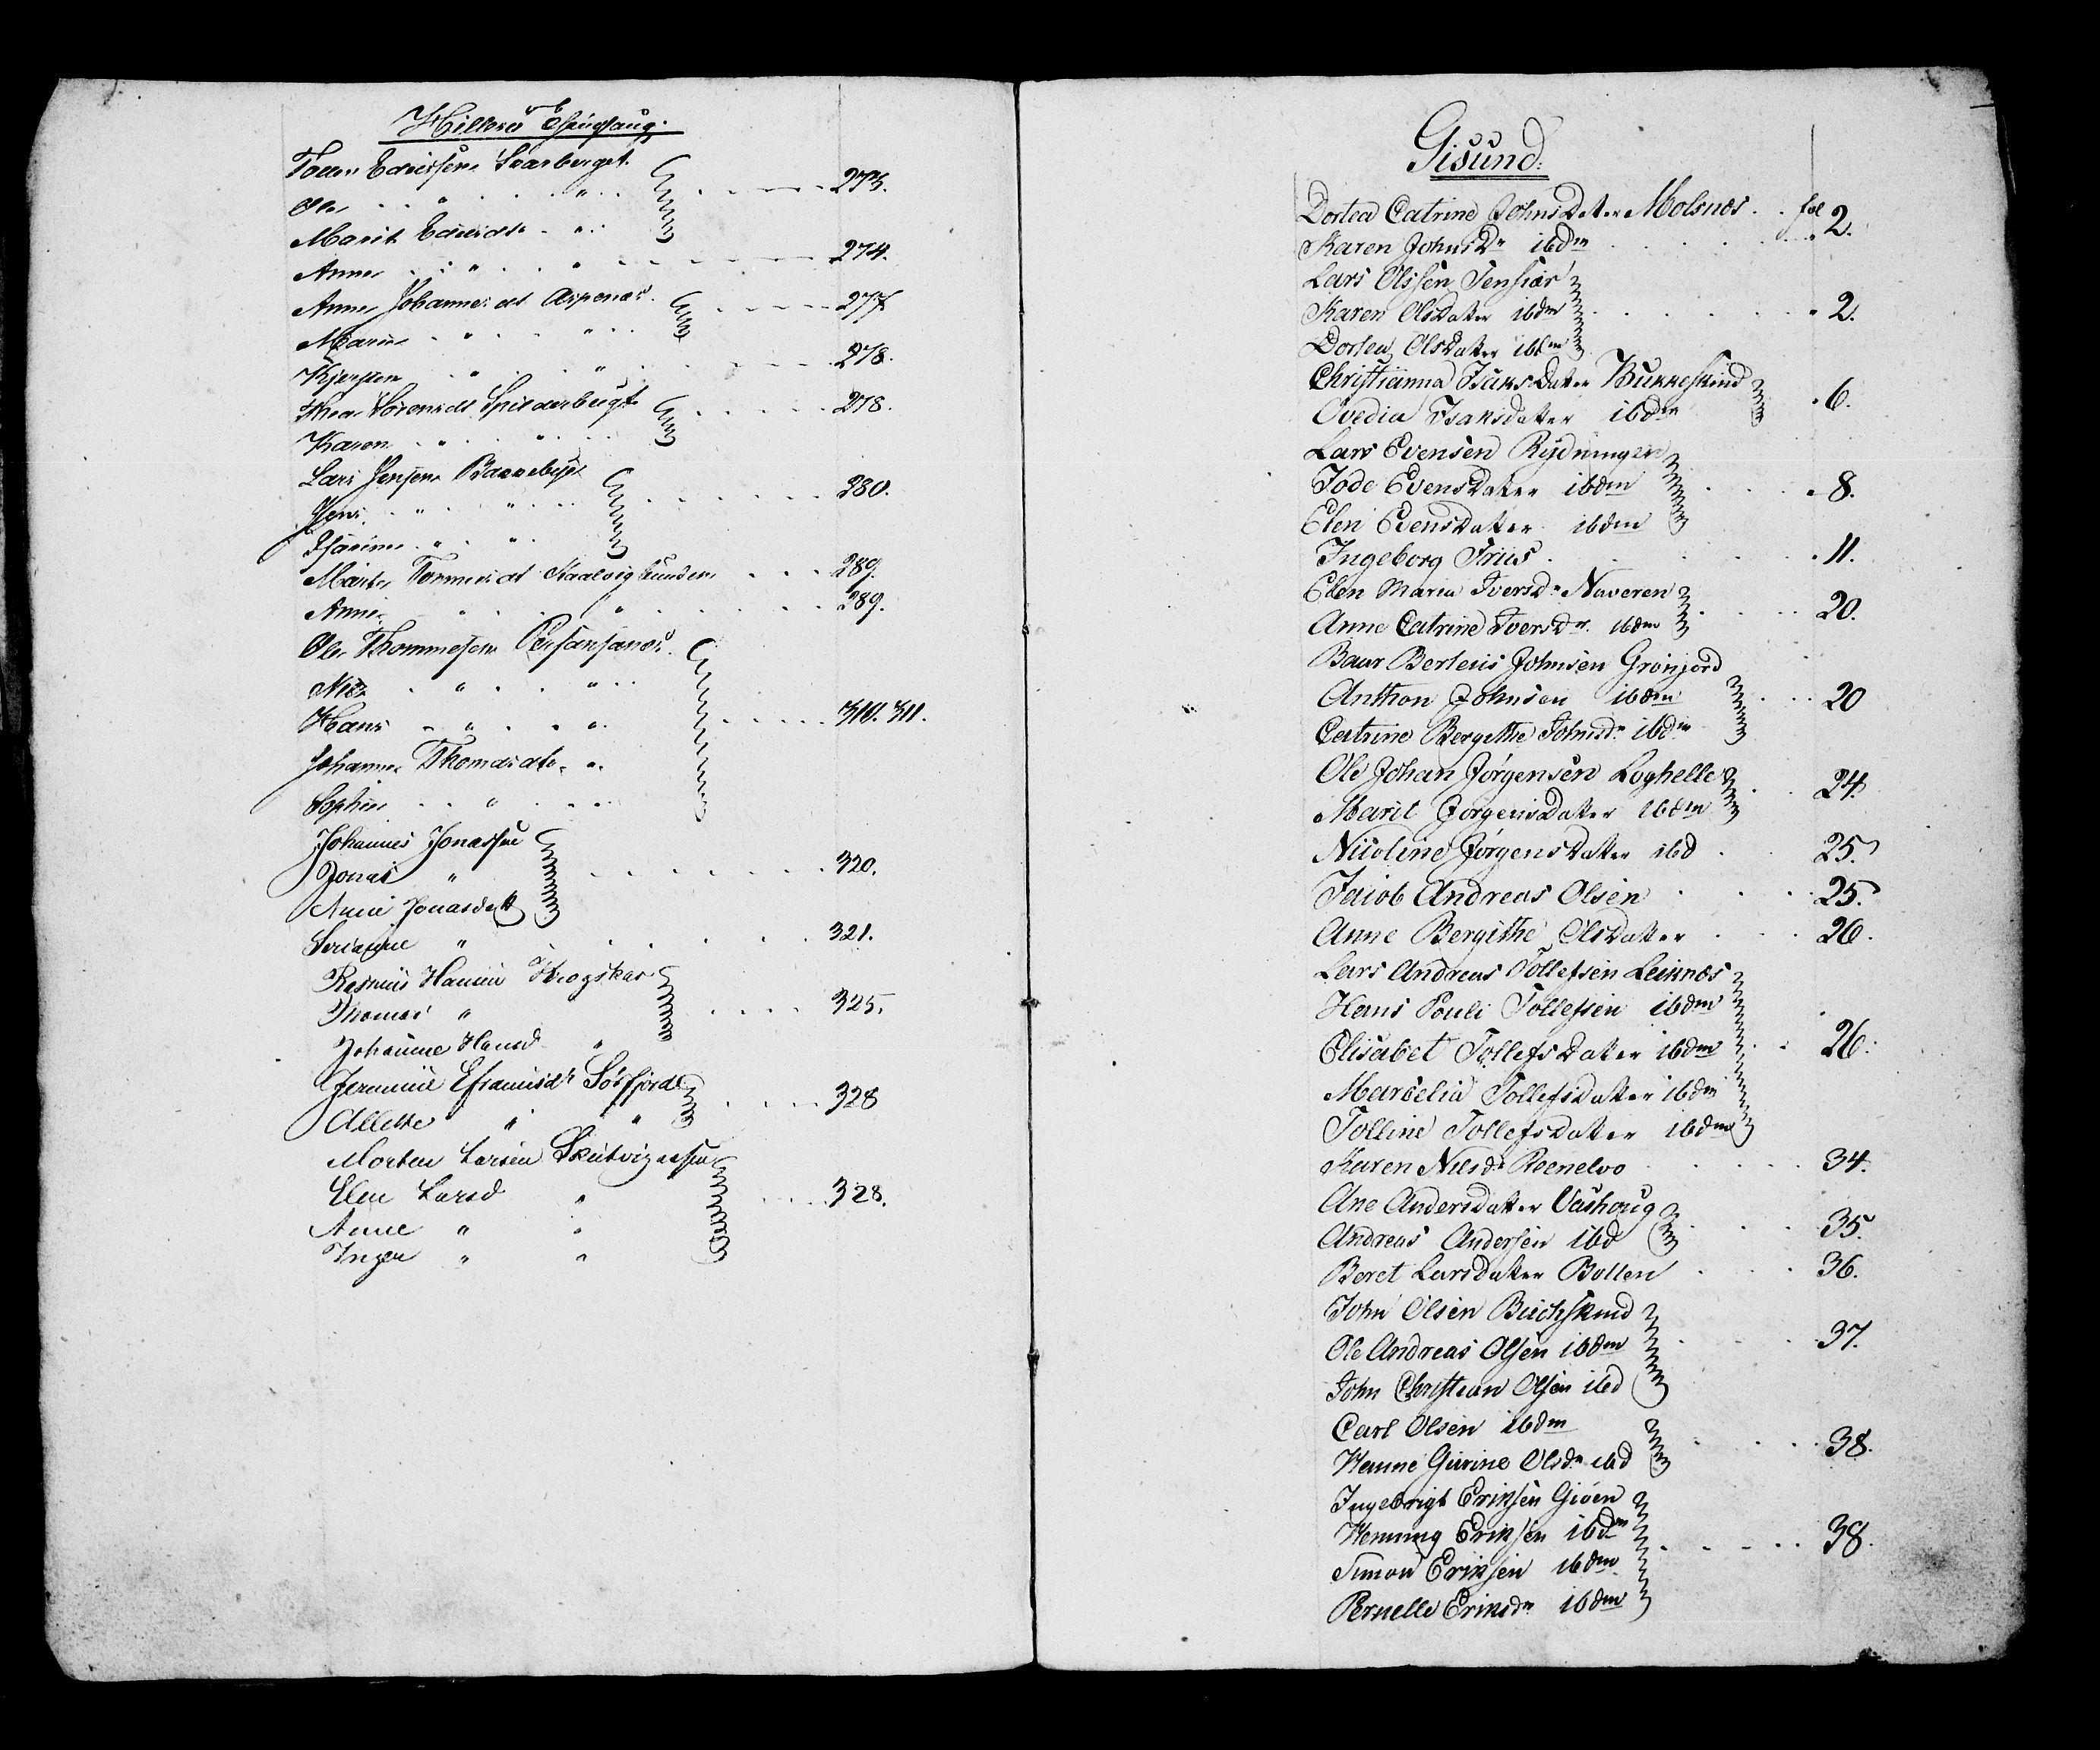 Hillesø Thinglaug.
Edvardsen Svarberget.
Ole " " 273.
Marit Edvardsdt "
Anne " " 274.
Anne Johannesdt Aspenæs 277
Maren " "
Kjersten " " 278.
Thea Sørensdt Spilderbugt 278.
Karen " "
Lars Jensen Bakkebye
Jens " " 280.
" "
Marte Tommesdt 289.
Anne " " 289.
Ole Thommesen
Nils " "
Hans " " 310. 311.
Johanne Thomasdt "
Sophie " "
Johannes Jonassen
Jonas " 320.
Anne Jonasdatt
" 321.
Rasmus Hansen Krogskar
Thomas " 325.
Johanne Hansd "
Efraimsdt Sørfjord
Allette " " 328
Morten Larsen
Elen Larsd " 328.
Anne " "
Inger " "
Gisund.
Dortea Catrine JohnsDater Molsnæs fol 2.
Karen JohnsDr ibdm "
Lars Olssen Tenskiær
Karen OlsDatter ibdm " 2.
Dortea OlsDatter ibdm
Christianna IsaksDater Bukkeskind
Ovedia Isaksdatter ibdm " 6.
Lars Evensen Rydningen
Tode EvensDater ibdm " 8.
Elen EvensDatter ibdm
Ingeborg Friis " 11.
Elen Maria Iversdr Naveren
Anne Catrine IversDr ibdm 20.
Baur Berteus Johnsen Grønjord
Anthon Johnsen ibdm 20
Catrine Bergithe Johnsdr ibdm
Ole Johan Jørgensen Løghelle
Marit JørgensDatter ibdm 24.
Nicoline JørgensDatter ibd 25.
Jacob Andreas Olsen 25.
Anne Bergithe OlsDatter 26.
Lars Andreas Tollefsen Leiknæs
Hans Pouli Tollefsen ibdm
Elisabet TollefsDater ibdm 26.
Marselia TollefsDatter ibdm
Tolline TollefsDatter ibdm
Karen Nilsdr Reenelvo 34.
Ane Andersdatter Vashoug
Andreas Andersen ibd 35.
Beret LarsDatter Botten 36.
John Olsen Buchskind
Ole Andreas Olsen ibdm 37.
John Christian Olsen ibd
Carl Olsen ibdm
Hanne Gurine Olsdr ibd 38.
Ingebrigt Eriksen Gioen
Henning Eriksen ibdm 38.
Simon Eriksen ibdm
Pernelle Eriksdr ibdm